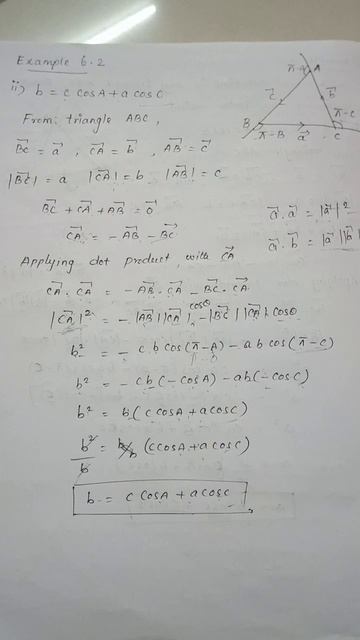 Example 6.2
ii) b = c cosA + a cosC
From triangle ABC,
π-A A
c⃗ b⃗
π-C
B π-B a⃗ C
B⃗C = a⃗ , C⃗A = b⃗ , A⃗B = c⃗
|B⃗C| = a |C⃗A| = b |A⃗B| = c
B⃗C + C⃗A + A⃗B = 0⃗
C⃗A = - A⃗B - B⃗C
a⃗ . a⃗ = |a⃗|²
a⃗ . b⃗ = |a⃗| |a⃗
Applying dot product with C⃗A
C⃗A . C⃗A = - A⃗B . C⃗A - B⃗C . C⃗A
|C⃗A|² = - |A⃗B| |C⃗A| cosθ - |B⃗C| |C⃗A| cosθ
b² = - c b cos(π-A) - a b cos(π-C)
b² = - cb(-cosA) - ab(-cosC)
b² = b(c cosA + a cosC)
b²/b = b/b (c cosA + a cosC)
b = c cosA + a cosC